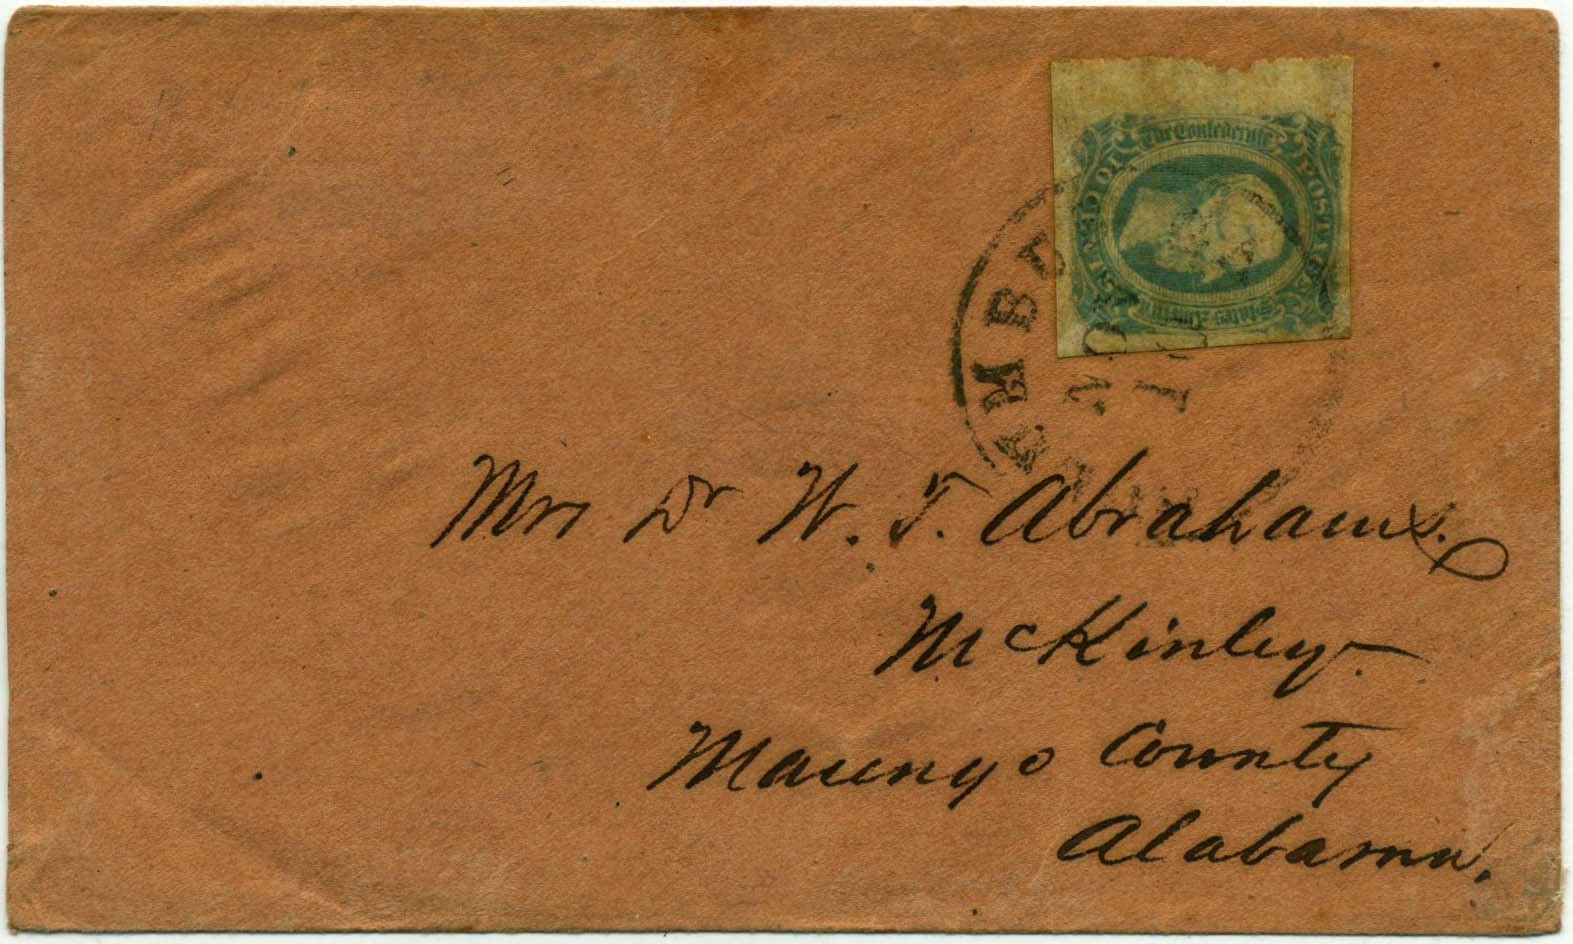 The Confederate
States America
POSTAGE
TEN CENTS
Mrs Dr W. T. Abrahams.
McKinley.
Maungo County
Alabama.